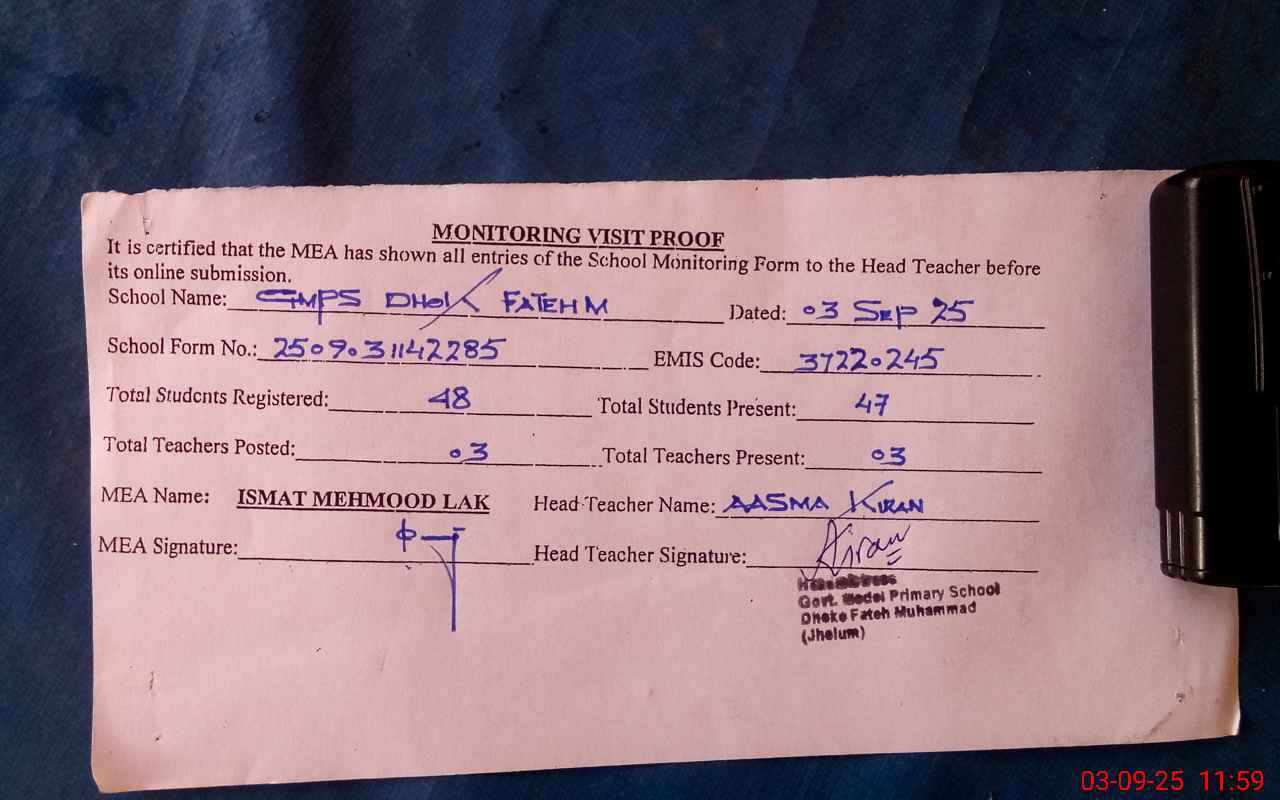 MONITORING VISIT PROOF
It is certified that the MEA has shown all entries of the School Monitoring Form to the Head Teacher before
its online submission.
School Name: GMPS DHOK FATEH M Dated: 03 SEP 25
School Form No.: 250903142285 EMIS Code: 37220245
Total Students Registered: 48 Total Students Present: 47
Total Teachers Posted: 03 Total Teachers Present: 03
MEA Name: ISMAT MEHMOOD LAK Head Teacher Name: AASMA KIRAN
MEA Signature: Head Teacher Signature: AKiran
Headmistress
Govt. Model Primary School
Dhoke Fateh Muhammad
(Jhelum)
03-09-25 11:59